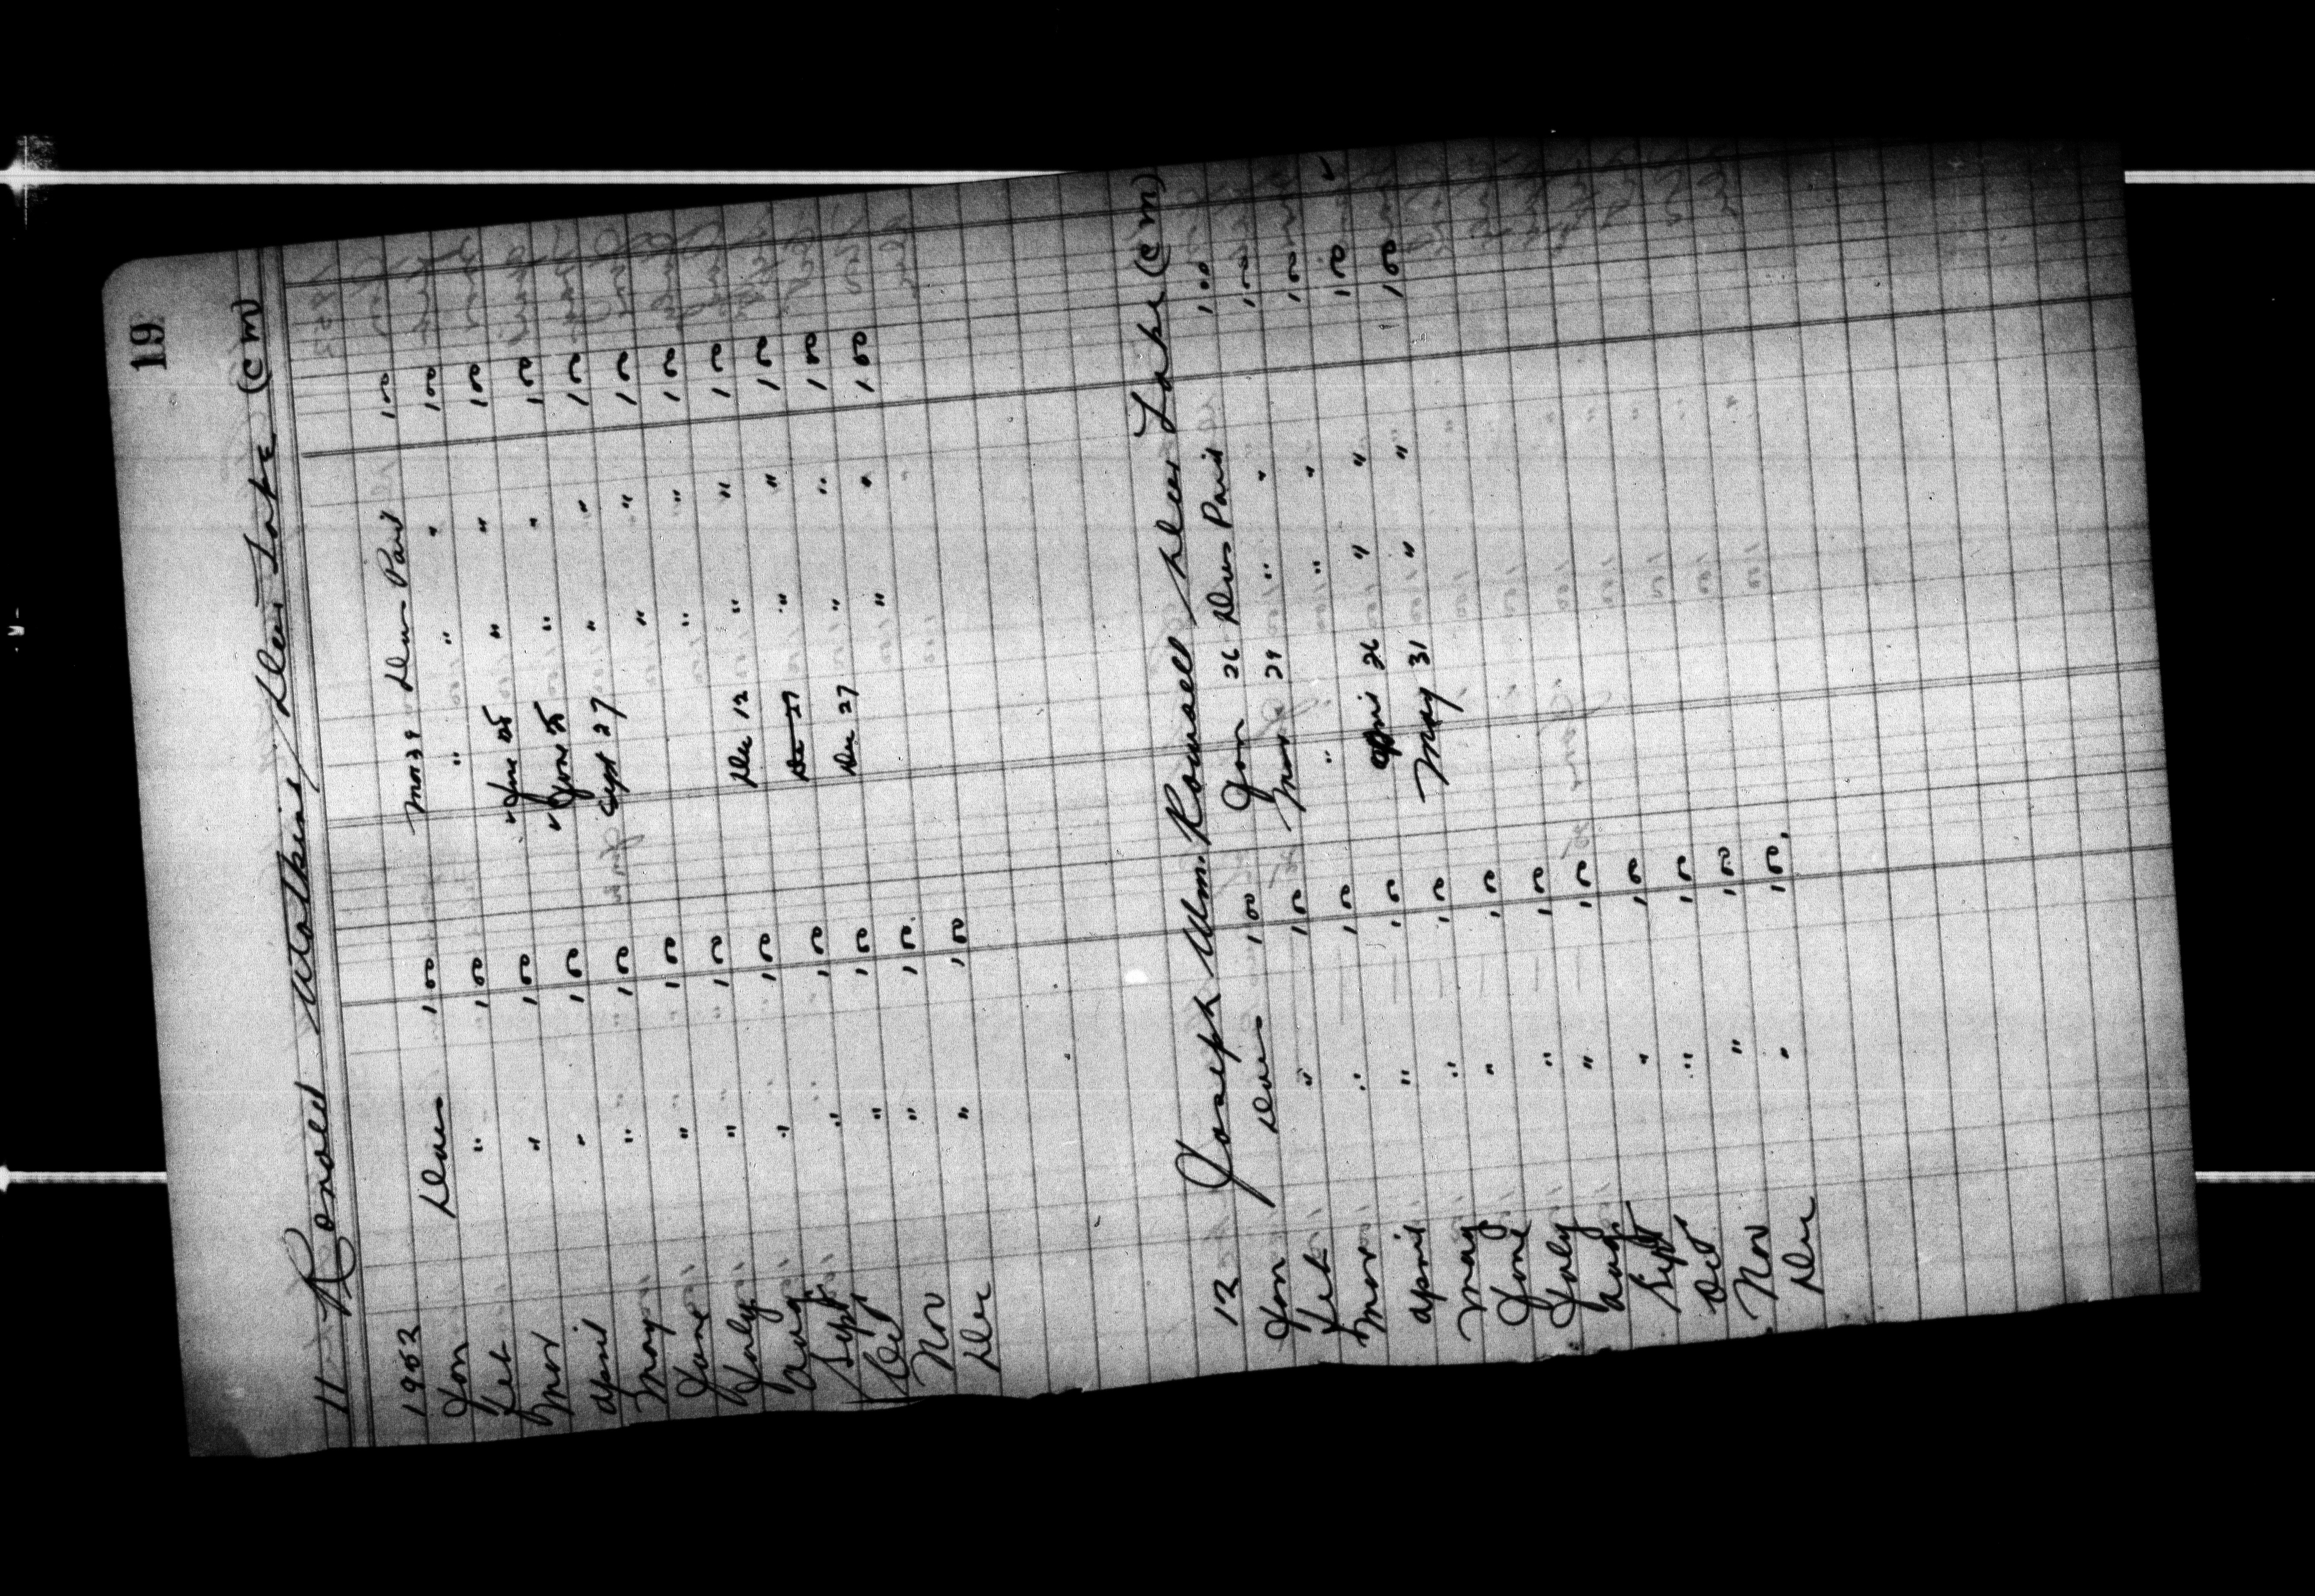 19
11 Ronald Watkins / Deer Lake (C M)
1952
Jan Dues 1 00 Mar 29 Dues Paid 1 00
Feb " 1 00 " " " 1 00
Mar " 1 00 " June 25 " " 1 00
April " 1 00 " June 25 " " 1 00
May " 1 00 Sept 27 " " 1 00
June " 1 00 " " 1 00
July " 1 00 " " 1 00
Aug. " 1 00 Dec 12 " " 1 00
Sept. " 1 00 Dec 27 " " 1 00
Oct " 1 00 Dec 27 " " 1 00
Nov " 1 00 " " 1 00
Dec " 1 00
12 Joseph Wm. Rowsell / Deer Lake (C M)
Jan Dues 1 00 Jan 26 Dues Paid 1 00
Feb " 1 00 Mar 29 " " 1 00
Mar " 1 00 " " " 1 00
April " 1 00 April 26 " " 1 00
May " 1 00 May 31 " " 1 00
June " 1 00
July " 1 00
Aug. " 1 00
Sept " 1 00
Oct " 1 00
Nov " 1 00
Dec " 1 00.